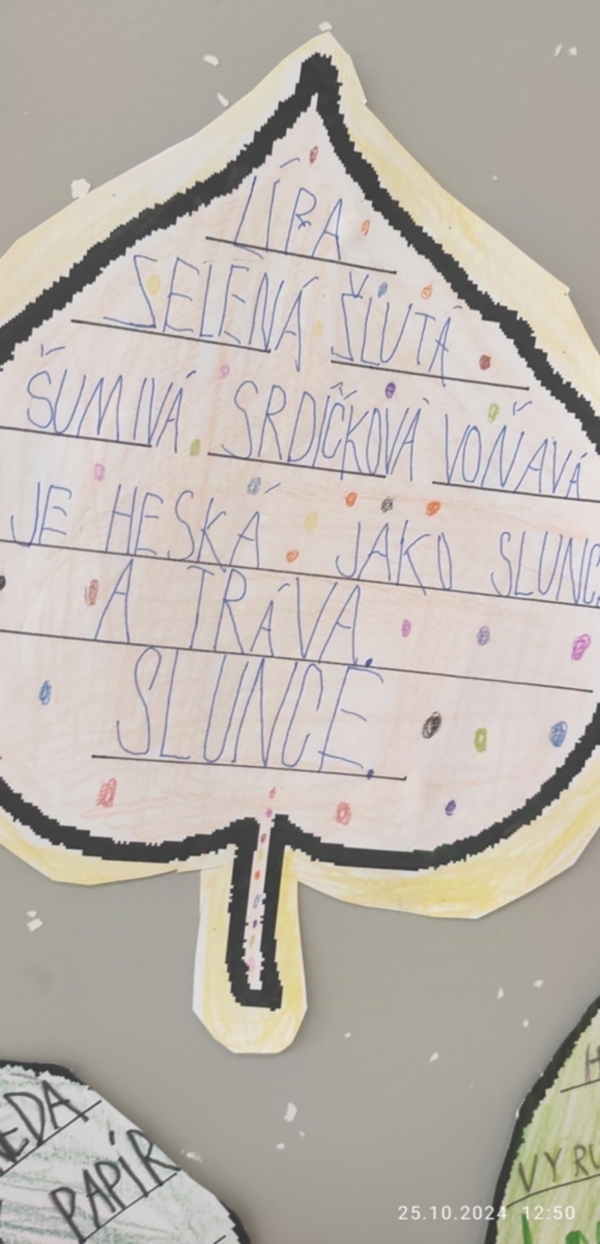 LÍPA
SELENÁ ŠLUTÁ
ŠUMIVÁ SRDÍČKOVÁ VOŇAVÁ
JE HESKÁ JAKO SLUNC
A TRÁVA.
SLUNCE.
PAPÍR
VY RU
25.10.2024 12:50